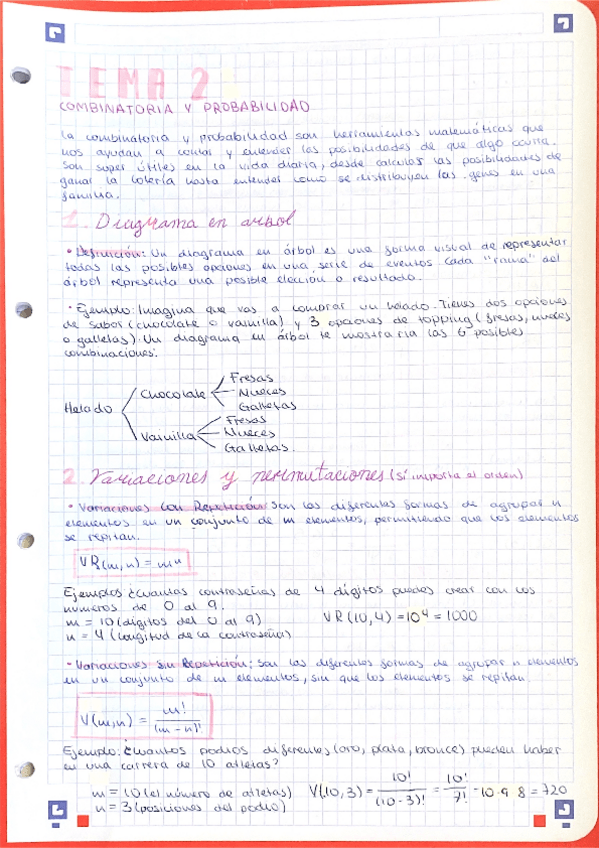 TEMA 2
COMBINATORIA Y PROBABILIDAD
La combinatoria y probabilidad son herramientas matemáticas que
nos ayudan a contar y entender las posibilidades de que algo ocurra.
Son super útiles en la vida diaria, desde calcular las posibilidades de
ganar la lotería hasta entender como se distribuyen las genes en una
familia.
1. Diagrama en árbol
• Definición: Un diagrama en árbol es una forma visual de representar
todas las posibles opciones en una serie de eventos. Cada "rama" del
árbol representa una posible elección o resultado.
• Ejemplo: Imagina que vas a comprar un helado. Tienes dos opciones
de sabor (chocolate o vainilla) y 3 opciones de topping (fresas, nueces
o galletas). Un diagrama en árbol te mostraría las 6 posibles
combinaciones:
Helado
Chocolate
Fresas
Nueces
Galletas
Vainilla
Fresas
Nueces
Galletas.
2. Variaciones y permutaciones (sí importa el orden)
• Variaciones con Repetición: Son las diferentes formas de agrupar n
elementos en un conjunto de m elementos, permitiendo que los elementos
se repitan.
VR(m,n) = mⁿ
Ejemplos ¿Cuántas contraseñas de 4 dígitos puedes crear con los
números de 0 al 9.
m = 10 (dígitos del 0 al 9) VR(10,4) = 10⁴ = 1000
n = 4 (longitud de la contraseña)
• Variaciones sin Repetición: Son las diferentes formas de agrupar n elementos
en un conjunto de m elementos, sin que los elementos se repitan.
V(m,n) = m! / (m-n)!
Ejemplo: ¿Cuántos podios diferentes (oro, plata, bronce) pueden haber
en una carrera de 10 atletas?
m = 10 (el número de atletas) V(10,3) = 10! / (10-3)! = 10! / 7! = 10·9·8 = 720
n = 3 (posiciones del podio)